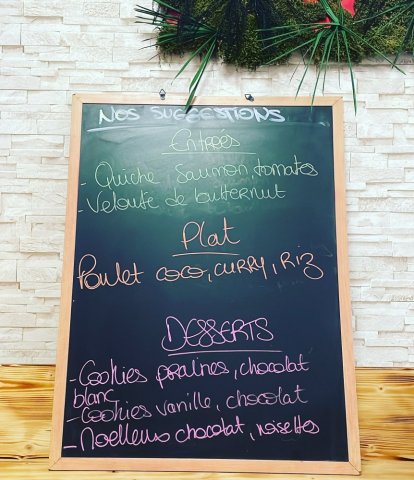 NOS SUGGESTIONS
Entrées
- Quiche Saumon, tomates
- Velouté de butternut
Plat
Poulet coco, curry, Riz
DESSERTS
- Cookies pralines, chocolat
blanc
- Cookies vanille, chocolat
- Moelleux chocolat, noisettes